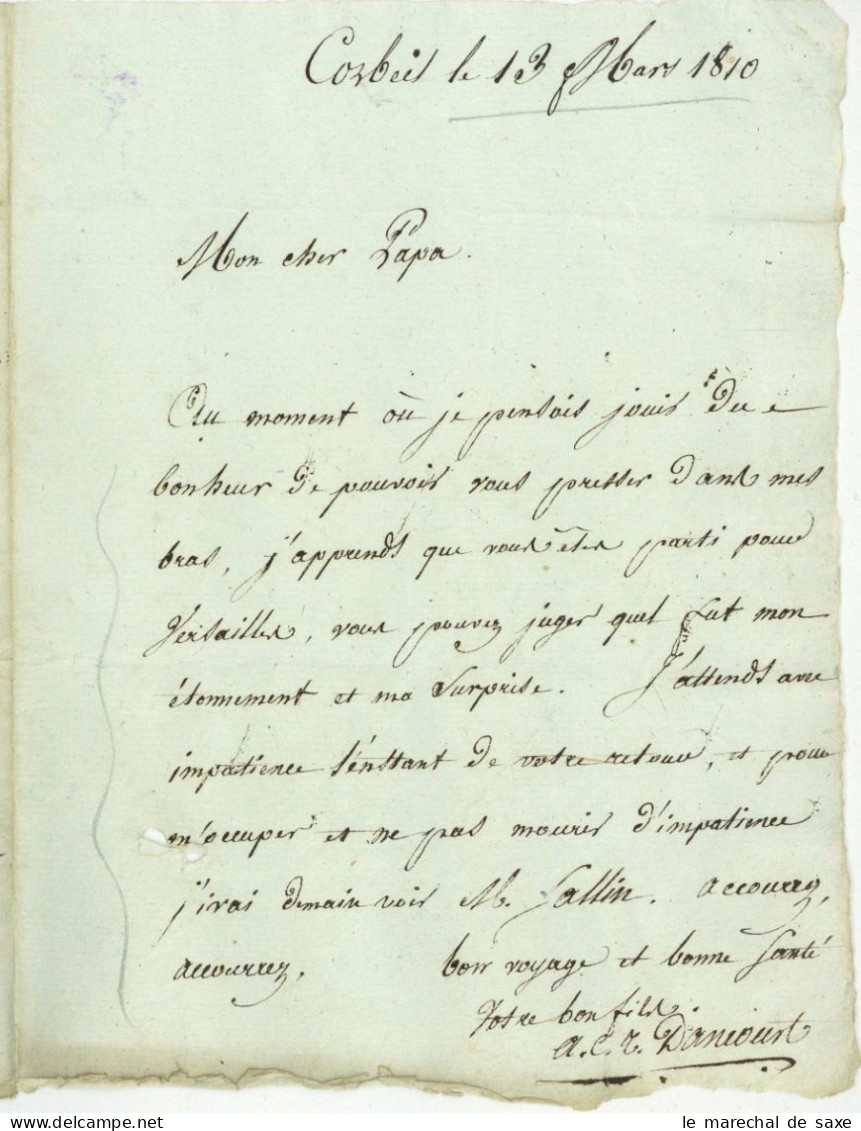 Corbeil le 13 Mars 1810
Mon cher Papa.
Au moment où je pensois jouir du
bonheur de pouvoir vous presser dans mes
bras, j'apprends que vous êtes parti pour
Versailles, vous pouvez juger quel fut mon
étonnement et ma surprise. J'attends avec
impatience l'énstant de votre retour, et pour
m'occuper et ne pas mourir d'impatience
j'irai demain voir M. Lallin. accourrez,
accourrez, bon voyage et bonne santé
Votre bon fils.
a. c. t. Dancourt
le marechal de saxe